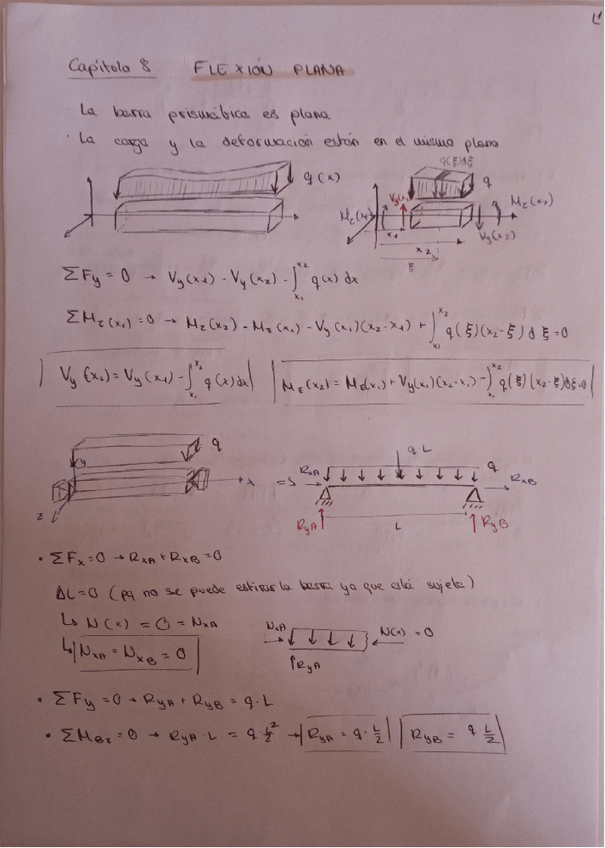 Capítulo 8 FLEXIÓN PLANA
La barra prismática es plana
· La carga y la deformación están en el mismo plano
q(x)
q(ξ)dξ
q
M_z(x₁) V_y(x₁) M_z(x₂)
x₁ V_y(x₂)
x₂
ξ
ΣF_y = 0 → V_y(x₁) - V_y(x₂) - ∫_{x₁}^{x₂} q(x) dx
ΣM_z(x₂) = 0 → M_z(x₂) - M_z(x₁) - V_y(x₁)(x₂-x₁) + ∫_{x₁}^{x₂} q(ξ)(x₂-ξ) dξ = 0
V_y(x₂) = V_y(x₁) - ∫_{x₁}^{x₂} q(x) dx M_z(x₂) = M_z(x₁) + V_y(x₁)(x₂-x₁) - ∫_{x₁}^{x₂} q(ξ)(x₂-ξ)dξ=0
q y x z
q L
=> R_xA q R_xB
R_yA L R_yB
· ΣF_x = 0 → R_xA + R_xB = 0
ΔL = 0 (pq no se puede estirar la barra ya que está sujeta)
↳ N(x) = 0 = N_xA
↳ N_xA = N_xB = 0
N_xA N(x) = 0
R_yA
· ΣF_y = 0 → R_yA + R_yB = q · L
· ΣM_Bz = 0 → R_yA · L = q · L²/2 → R_yA = q · L/2 R_yB = q · L/2